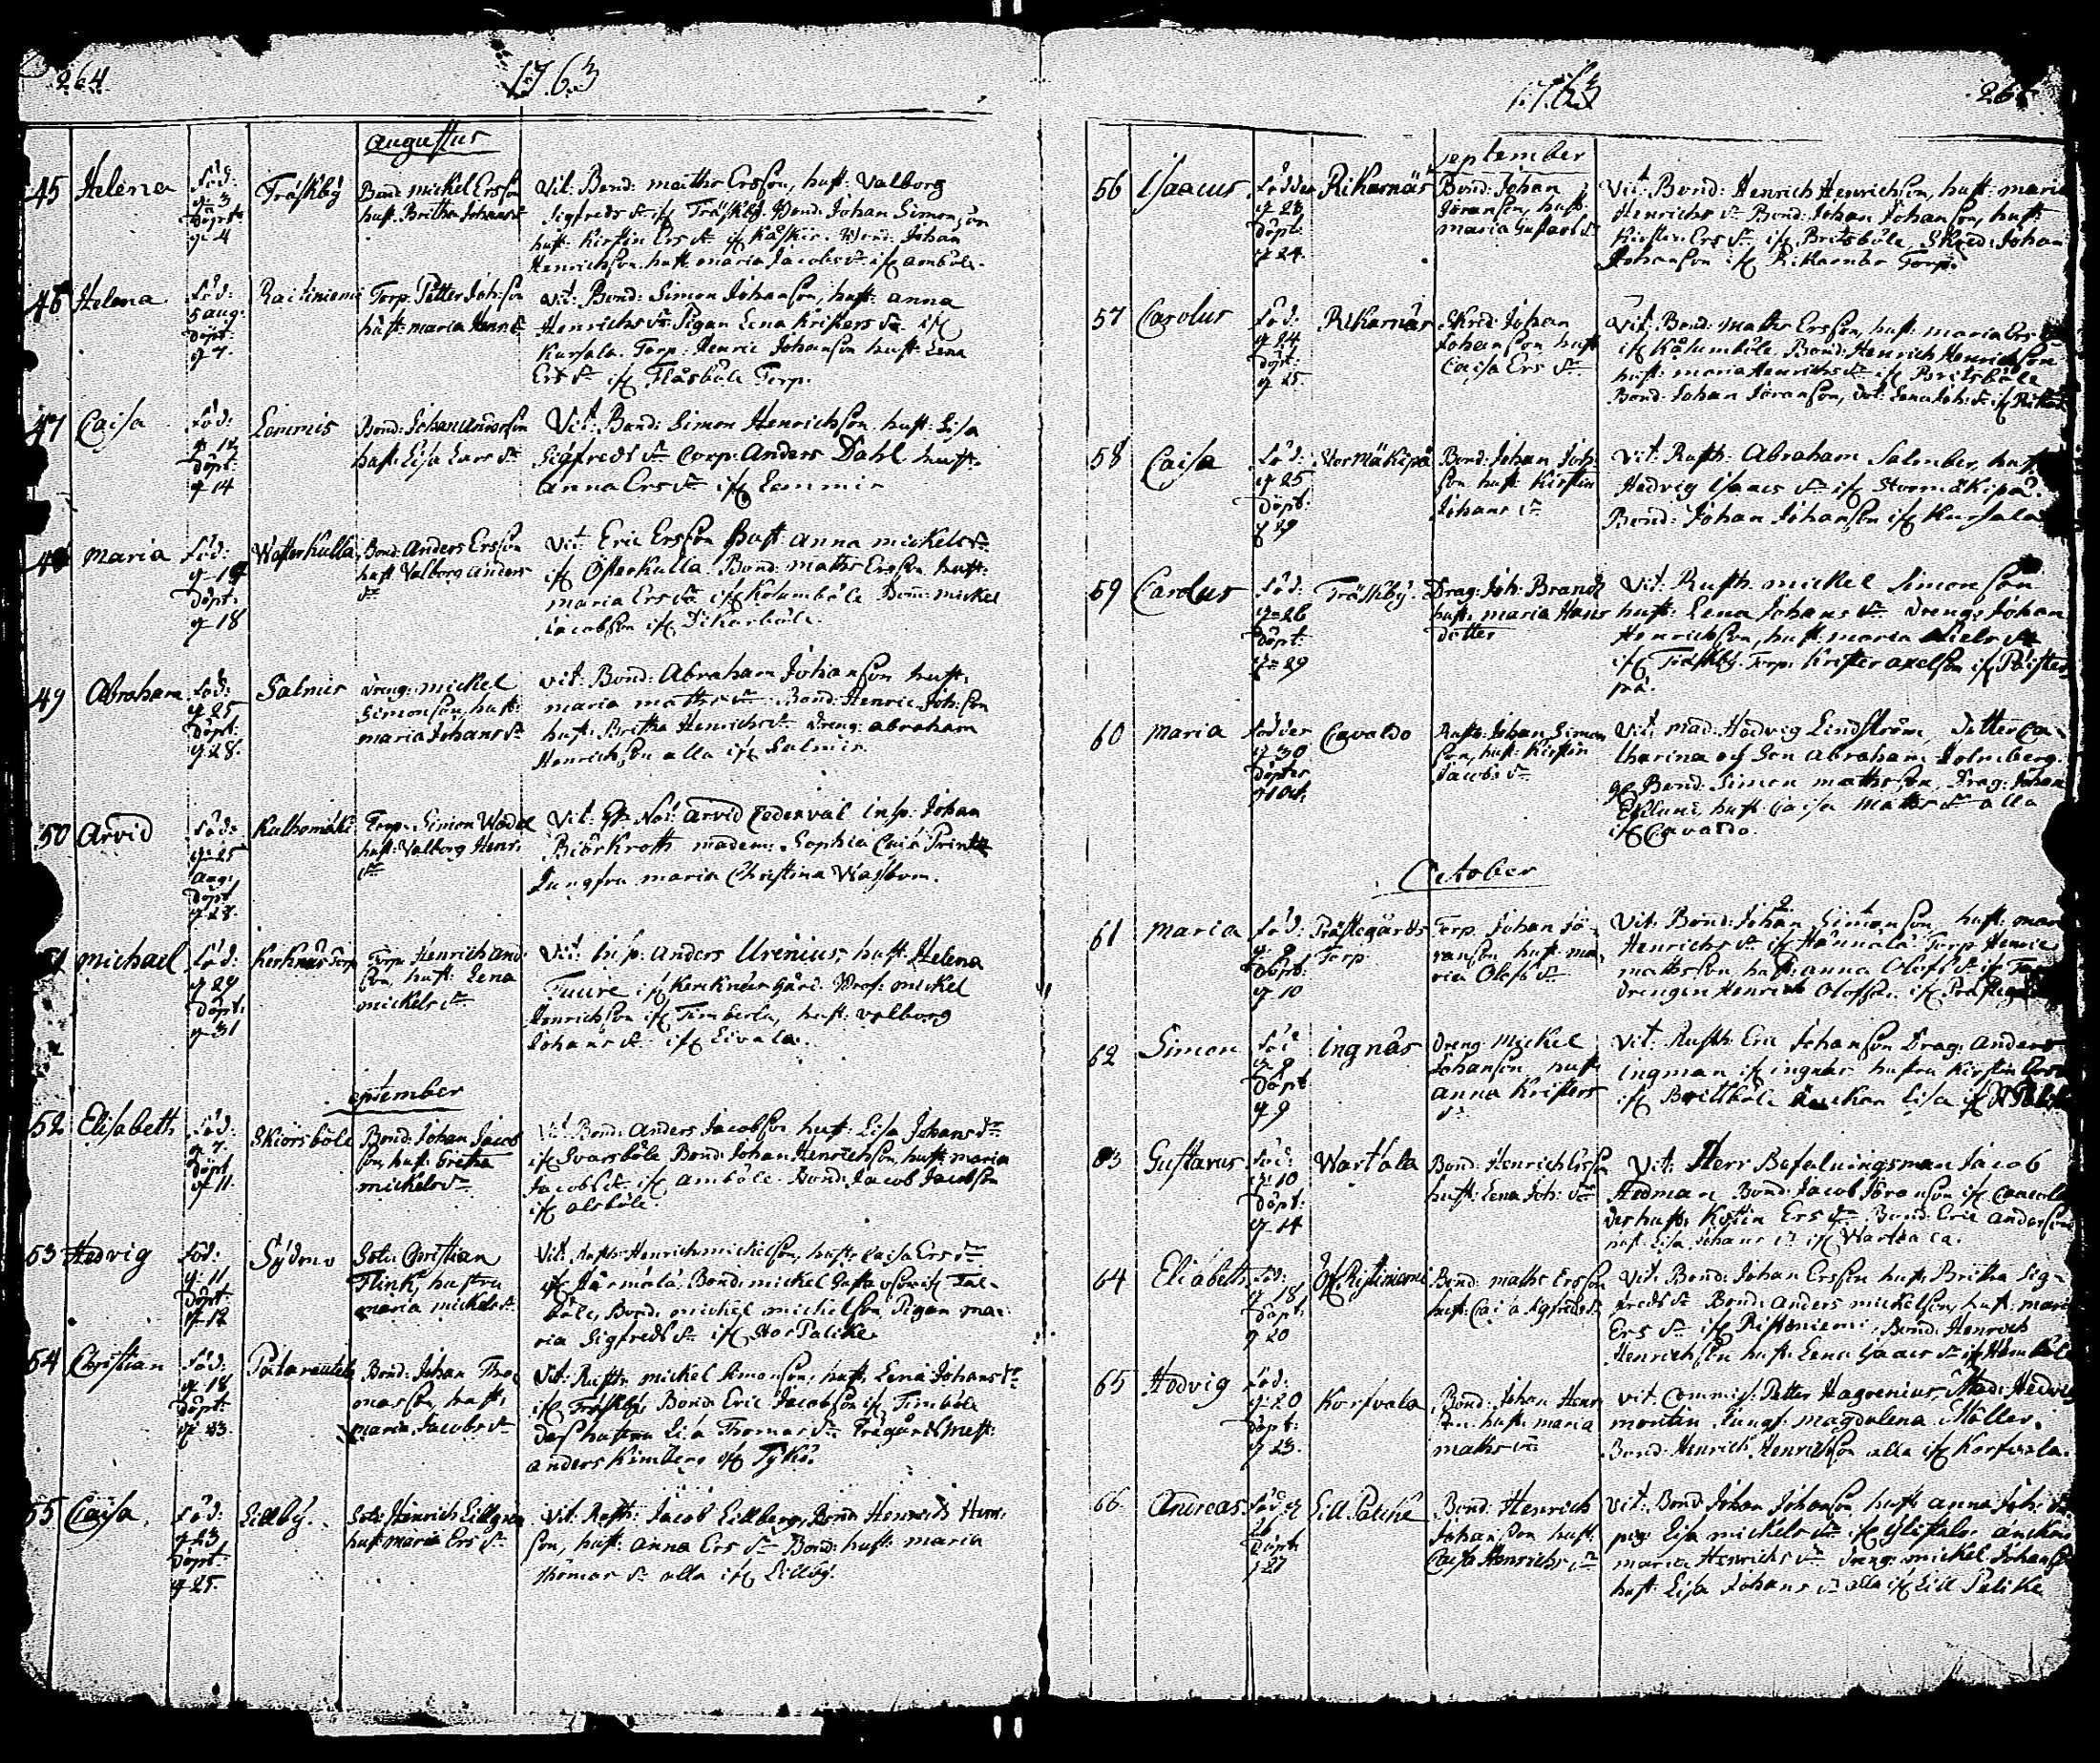 264
1763
Augustus
45 Helena Född: d. 3 döpt: d. 4 Träskby Bond: Mickel Ersson
hust: Britha Johans dr
Vit: Bond: Matths Ersson, hust: Valborg
Sigfreds dr ifr Träskby. Bond: Johan Simonson
hust: Kirstin Ers dr ifr Kåskis. Bond: Johan
Henrichson hust: Maria Jacobs dr ifr Amböle.
46 Helena Föd: 5 aug: döpt: d. 7. Raitiniemi Torp: Petter Joh:son
hust: Maria Henr: dr
Vit: Bond: Simon Johanson, hust: Anna
Henrichs dr Pigan Lena Kristers dr ifr
Kursala. Torp: Henric Johanson hust: Lena
Ers dr ifr Flåsböle Torp.
47 Caisa Föd: d. 12 döpt: d. 14 Lemmis Bond: Johan Anderson
hust: Lisa Lars dr
Vit: Bond: Simon Henrichson hust: Lisa
Sigfreds dr Corp: Anders Dahl hust:
Anna Ers dr ifr Lemmis
48 Maria Föd: döpt: d. 18 Westerkulla Bond: Anders Ersson
hust Valborg Anders
dr
Vit: Eric Ersson hust: Anna Mickels dr
ifr Österkulla. Bond: Maths Ersson hust:
Maria Ers dr ifr Kolumböle Bond: Mickel
Jacobson ifr
49 Abraham Föd: d. 25 döpt: d. 28. Salmis Dreng: Mickel
Simonson, hust:
Maria Johans dr
Vit: Bond: Abraham Johanson hust:
Maria Maths dr Bond: Henric Joh:son
hust: Britha Henrichs dr Dreng: Abraham
Henrichson alla ifr Salmis.
50 Arvid Föd: d. 25 aug: döpt d. 28. Kulhomäki Torp: Simon Wadel
hust: Valborg Henr:
dr
Vit: Arvid Cedervål Insp: Johan
Biörkroth Madem: Sophia Cais: Printz
Jungfru Maria Christina Wassbom.
51 Michael Föd: d. 29 döpt: d. 31 Kerknäs Torp Torp: Henrich And:
son, hust: Lena
Mickels dr
Vit: Insp: Anders Urenius, hust: Helena
Tuure ifr Kercknäs gård. Prof: Mickel
Henrichson ifr Timberla, hust: Valborg
Johans dr ifr Eivala.
September
52 Elisabeth Föd: d. 7. döpt d. 11. Skiorsböle Bond: Johan Jacob
son, hust: Gretha
Mickels dr
Vit: Bond: Anders Jacobson hust: Lisa Johans dr
ifr Svarsböle Bond: Johan Henrichson, hust: Maria
Jacobs dr ifr Amböle. Bond: Jacob Jacobson
ifr Alsböle.
53 Hedvig Föd: d. 11 döpt: d. 12 Sydmo Solt: Christian
Flink, hustru
Maria Mickels dr
Vit: Rusth: Henrich Mickelson, hust: Caisa Ers dr
ifr Härmälä. Bond: Mickel Gustavson ifr Tal-
böle, Bond: Mickel Mickelson Pigan Ma-
ria Sigfreds dr ifr Stor Palike.
54 Christian Föd: d. 18 döpt: d. 23. Patarautela Bond: Johan Tho-
masson, hust:
Maria Jacobs dr
Vit: Rusth: Mickel Simonson, hust: Lena Johans dr
ifr Träskby, Bond: Eric Jacobson ifr Timböle
dess hustru Lisa Thomas dr Trägårdsmest:
Anders Kimberg ifr Tykö.
55 Caisa Föd: d. 23 döpt: d. 25. Lillby. Solt: Henrich Lillgren
hust: Maria Ers dr
Vit: Rusth: Jacob Lillberg, Bond: Henrich Henr:
son, hust: Anna Ers dr Bond: hust: Maria
Thomas dr alla ifr Lillby.
1763
265
September
56 Isaacus Födder d. 23 döpt: d. 24. Rikarnäs Bond: Johan
Jöranson, hust:
Maria Gustavs dr
Vit: Bond: Henrich Henrichson, hust: Maria
Henrichs dr Bond: Johan Johanson, hust:
Kirstin Ers dr ifr Britsböle, Skred: Johan
Johanson ifr Rikarnäs Torp.
57 Carolus Föd: d. 24 döpt: d. 25. Rikarnäs Skred: Johan
Johanson hust
Caisa Ers dr
Vit: Bond: Maths Ersson, hust: Maria Ers dr
ifr Kålumböle. Bond: Henrich Henrichson
hust: Maria Henrichs dr ifr Britsböle
Bond: Johan Jöranson, dot: Lena Joh: dr ifr
58 Caisa Föd: d. 25 döpt: d. 29 Stormäkipä Bond: Johan Joh:
son hust: Kirstin
Johans dr
Vit: Rusth: Abraham Salmber, hust
Hedvig Isaacs dr ifr Stormäkipä.
Bond: Johan Johanson ifr Kursala
59 Carolus Föd: d. 26 döpt: d. 29 Träskby. Drag: Joh: Brandt
hust: Maria Hans
dotter
Vit: Rusth: Mickel Simonson
hust: Lena Johans dr Dreng: Johan
Henrichson, hust: Maria Niels dr
ifr Träskby. Torp: Krister Axelson ifr
pä.
60 Maria Födder d. 30 döptes d. 1 Oct: Cavaldo Rusth: Johan Simon
son, hust: Kirstin
Jacobs dr
Vit: Mad: Hedvig Lindström, dotter Ca-
tharina och Son Abraham Holmberg.
Bond: Simon Mathsson, Drag: Johan
Eklund, hust: Caisa Maths dr alla
ifr Cavaldo.
October
61 Maria Föd: döpt: d. 10 Prästegårds
Torp Torp: Johan Jö-
ranson hust: Ma-
ria Olofs dr
Vit: Bond: Johan Simonson hust: Mar
Henrichs dr ifr Hännälä. Torp: Henric
Mathsson hust: Anna Olofs dr ifr
Drengen Henrich Olofsson ifr Prästegå
62 Simon Föd döpt d. 9 Ingnäs Dreng Mickel
Johanson, hust:
Anna Kristers
dr
Vit: Rusth: Eric Johanson Drag: Anders
Ingman ifr Ingnäs hustru Kirstin Ers
ifr Brittböle Änckan Lisa ifr
63 Gustavus Föd: d. 10 döpt: d. 14 Wartsala Bond: Henrich Ersson
hust: Lena Joh: dr
Vit: Herr Befalningsman Jacob
Hedman Bond: Jacob Jöranson ifr
des hust: Kirstin Ers dr Bond: Eric Anderson
hust: Lisa Johans dr ifr Wartsala.
64 Elisabeth Föd: d. 18 döpt: d. 20 Öfr Ristiniemi Bond: Maths Ersson
hust: Caisa Sigfreds dr
Vit: Bond: Johan Ersson hust: Britha Sig-
freds dr Bond: Anders Mickelson, hust: Maria
Ers dr ifr Ristiniemi, Bond: Henrich
Henrichson hust: Lena Isaacs dr ifr
65 Hedvig Föd: d. 20 döpt: d. 23. Korfvala Bond: Johan Henr
son hust: Maria
Maths dr
Vit: Commiss: Petter Hagrenius, Mad: Hedvig
Montin Jungf: Magdalena Möller.
Bond: Henrich Henrichson alla ifr Korfvala.
66 Andreas Född d. 26 döpt: d. 27 Lill Palike Bond: Henrich
Johanson hust
Caisa Henrichs dr
Vit: Bond: Johan Johanson hust: Anna Joh: dr
pig: Lisa Mickels dr ifr änckan
Maria Henrichs dr Dreng: Mickel Johanson
hust: Lisa Johans dr alla ifr Lill Palike